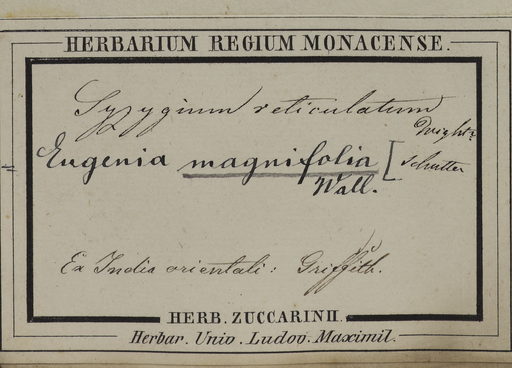 HERBARIUM REGIUM MONACENSE.
Syzygium reticulatum
Wight.
Eugenia magnifolia
Wall.
Ex India orientali: Griffith.
HERB. ZUCCARINII.
Herbar. Univ. Ludov. Maximil.